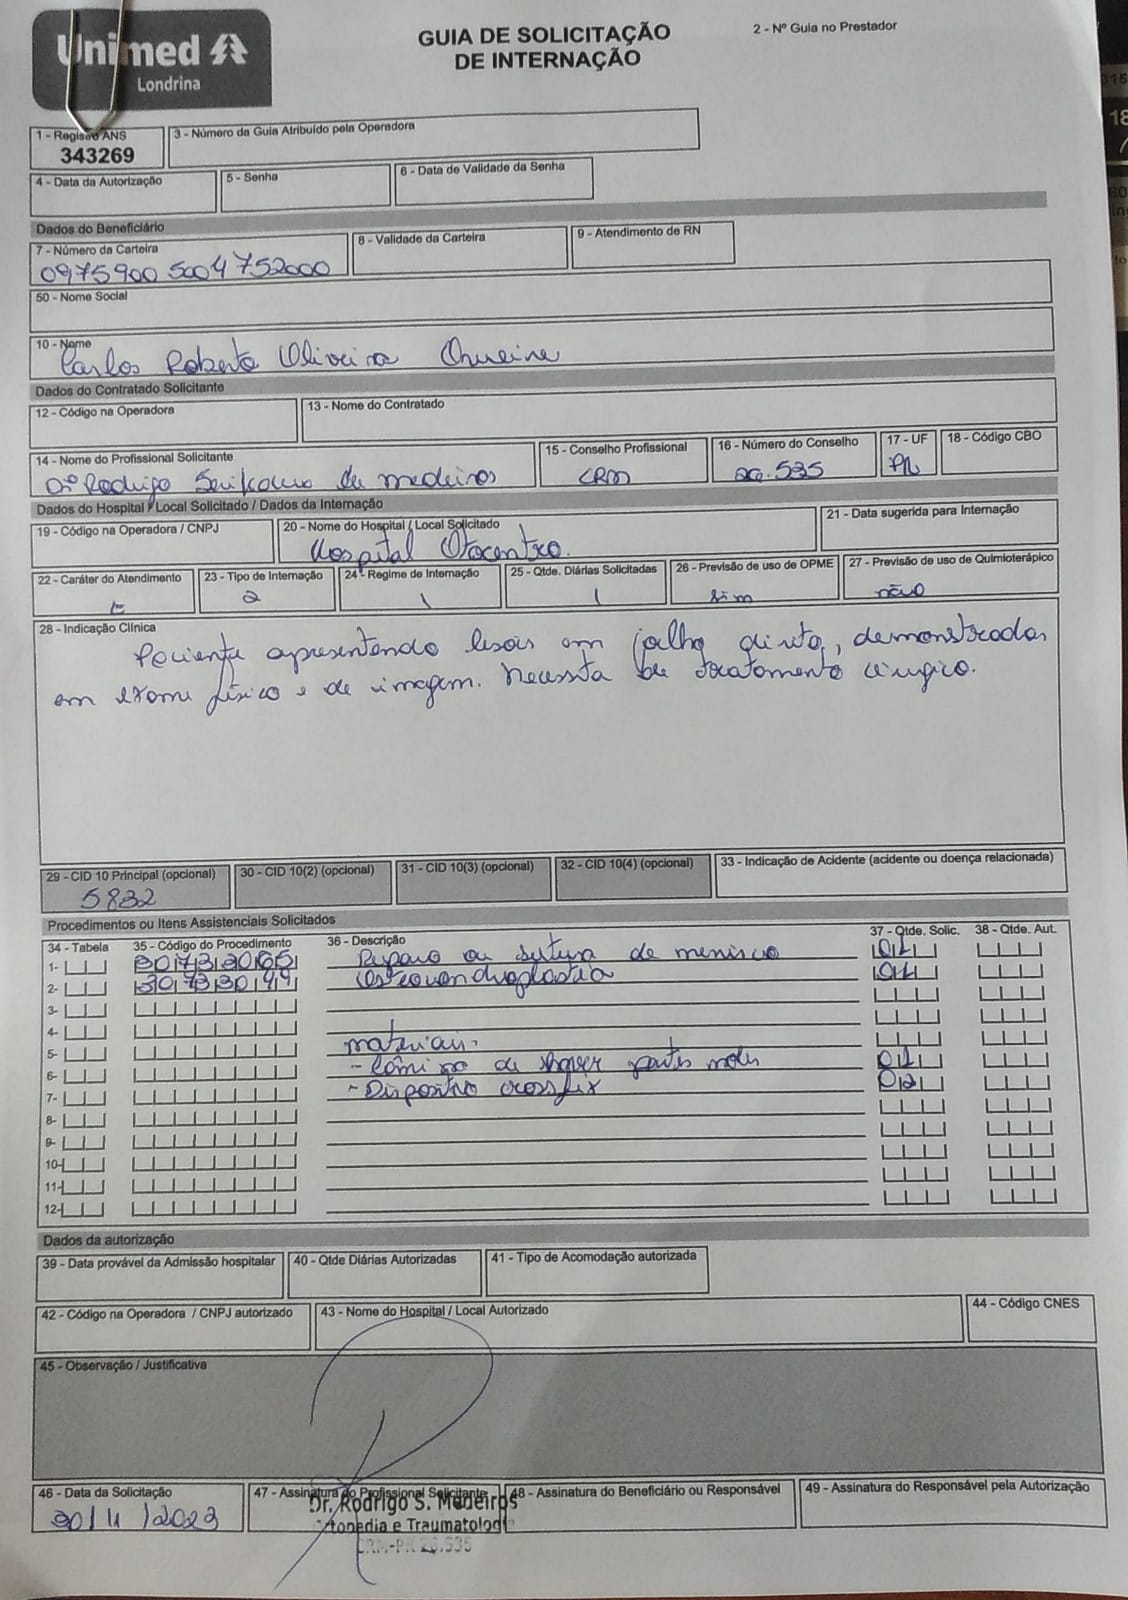 Unimed
Londrina
GUIA DE SOLICITAÇÃO
DE INTERNAÇÃO
2 - Nº Guia no Prestador
1 - Registro ANS
343269
3 - Número da Guia Atribuído pela Operadora
4 - Data da Autorização
5 - Senha
6 - Data de Validade da Senha
Dados do Beneficiário
7 - Número da Carteira
09759005004752000
8 - Validade da Carteira
9 - Atendimento de RN
50 - Nome Social
10 - Nome
Carlos Roberto Oliveira
Dados do Contratado Solicitante
12 - Código na Operadora
13 - Nome do Contratado
14 - Nome do Profissional Solicitante
Dr Rodrigo de medeiros
15 - Conselho Profissional
CRM
16 - Número do Conselho
26.535
17 - UF
PR
18 - Código CBO
Dados do Hospital / Local Solicitado / Dados da Internação
19 - Código na Operadora / CNPJ
20 - Nome do Hospital / Local Solicitado
Hospital Otocentro.
21 - Data sugerida para Internação
22 - Caráter do Atendimento
E
23 - Tipo de Internação
2
24 - Regime de Internação
1
25 - Qtde. Diárias Solicitadas
1
26 - Previsão de uso de OPME
sim
27 - Previsão de uso de Quimioterápico
não
28 - Indicação Clínica
Paciente apresentando lesões em joelho direito, demonstradas
em exame físico e de imagem. Necessita de tratamento cirúrgico.
29 - CID 10 Principal (opcional)
S832
30 - CID 10(2) (opcional)
31 - CID 10(3) (opcional)
32 - CID 10(4) (opcional)
33 - Indicação de Acidente (acidente ou doença relacionada)
Procedimentos ou Itens Assistenciais Solicitados
34 - Tabela
35 - Código do Procedimento
36 - Descrição
37 - Qtde. Solic.
38 - Qtde. Aut.
1- 30733065 Reparo ou sutura de menisco 01
2- 30733049 Osteocondroplastia 01
3-
4-
5- materiais:
6- - Lâmina de shaver partes moles 01
7- - Dispositivo crossfix 02
8-
9-
10-
11-
12-
Dados da autorização
39 - Data provável da Admissão hospitalar
40 - Qtde Diárias Autorizadas
41 - Tipo de Acomodação autorizada
42 - Código na Operadora / CNPJ autorizado
43 - Nome do Hospital / Local Autorizado
44 - Código CNES
45 - Observação / Justificativa
46 - Data da Solicitação
30/11/2023
47 - Assinatura do Profissional Solicitante
Dr. Rodrigo S. Medeiros
Ortopedia e Traumatologia
CRM-PR 26.535
48 - Assinatura do Beneficiário ou Responsável
49 - Assinatura do Responsável pela Autorização